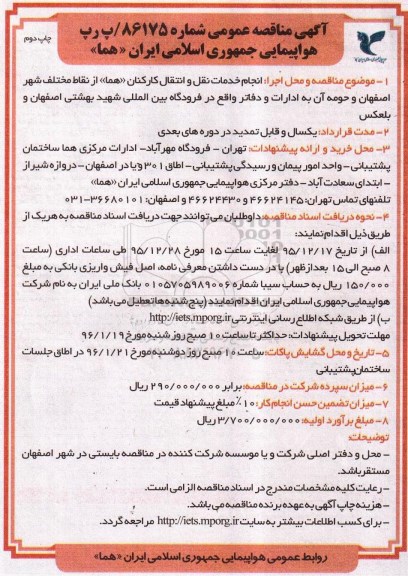 آگهی مناقصه عمومی شماره ۸۶۱۷۵/پ رپ
هواپیمایی جمهوری اسلامی ایران «هما»
چاپ دوم
۱- موضوع مناقصه و محل اجرا: انجام خدمات نقل و انتقال کارکنان «هما» از نقاط مختلف شهر
اصفهان و حومه آن به ادارات و دفاتر واقع در فرودگاه بین المللی شهید بهشتی اصفهان و
بلعکس
۲- مدت قرارداد: یکسال و قابل تمدید در دوره های بعدی
۳- محل خرید و ارائه پیشنهادات: تهران - فرودگاه مهرآباد- ادارات مرکزی هما ساختمان
پشتیبانی - واحد امور پیمان و رسیدگی پشتیبانی - اطاق ۳۰۱ و یا در اصفهان - دروازه شیراز
- ابتدای سعادت آباد - دفتر مرکزی هواپیمایی جمهوری اسلامی ایران «هما»
تلفنهای تماس تهران: ۴۶۶۲۴۱۴۵ و ۴۶۶۲۴۴۳۰ و اصفهان: ۳۶۶۸۰۱۰۱-۰۳۱
۴- نحوه دریافت اسناد مناقصه: داوطلبان می توانند جهت دریافت اسناد مناقصه به هریک از
طریق ذیل اقدام نمایند:
الف) از تاریخ ۹۵/۱۲/۱۷ لغایت ساعت ۱۵ مورخ ۹۵/۱۲/۲۸ طی ساعات اداری (ساعت
۸ صبح الی ۱۵ بعدازظهر) با در دست داشتن معرفی نامه، اصل فیش واریزی بانکی به مبلغ
۱۵۰/۰۰۰ ریال به حساب سیبا شماره ۰۱۰۵۷۰۵۹۸۹۰۰۶ بانک ملی ایران به نام شرکت
هواپیمایی جمهوری اسلامی ایران اقدام نمایند (پنج شنبه ها تعطیل می باشد)
ب) از طریق شبکه اطلاع رسانی اینترنتی http://iets.mporg.ir
مهلت تحویل پیشنهادات: حداکثر تا ساعت ۱۰ صبح روز شنبه مورخ ۹۶/۱/۱۹
۵- تاریخ و محل گشایش پاکات: ساعت ۱۰ صبح روز دوشنبه مورخ ۹۶/۱/۲۱ در اطاق جلسات
ساختمان پشتیبانی
۶- میزان سپرده شرکت در مناقصه: برابر ۲۹۰/۰۰۰/۰۰۰ ریال
۷- میزان تضمین حسن انجام کار: ۱۰٪ مبلغ پیشنهاد قیمت
۸- مبلغ برآورد اولیه: ۳/۷۰۰/۰۰۰/۰۰۰ ریال
توضیحات:
- محل و دفتر اصلی شرکت و یا موسسه شرکت کننده در مناقصه بایستی در شهر اصفهان
مستقر باشد.
- رعایت کلیه مشخصات مندرج در اسناد مناقصه الزامی است.
- هزینه چاپ آگهی به عهده برنده مناقصه می باشد.
- برای کسب اطلاعات بیشتر به سایت http://iets.mporg.ir مراجعه گردد.
روابط عمومی هواپیمایی جمهوری اسلامی ایران «هما»